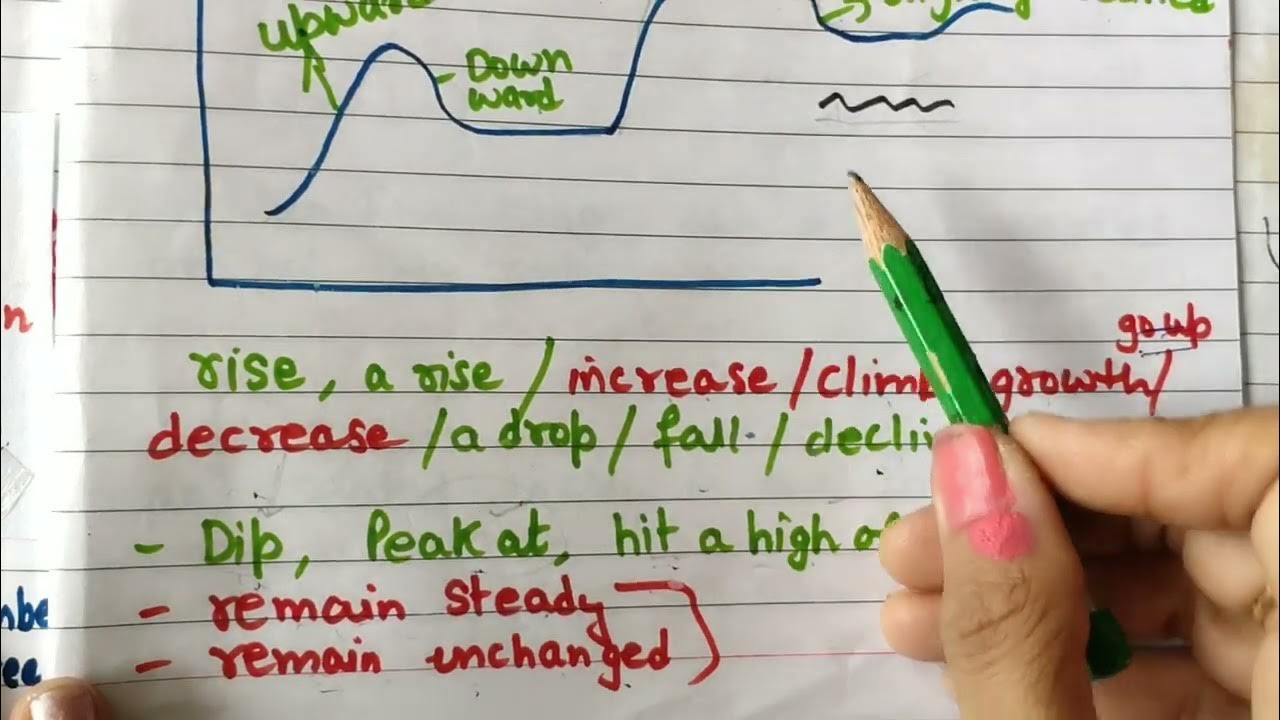 upward
Down
ward
go up
rise, a rise / increase / climb growth /
decrease / a drop / fall. /
- Dip, Peak at, hit a high of
- remain steady
- remain unchanged